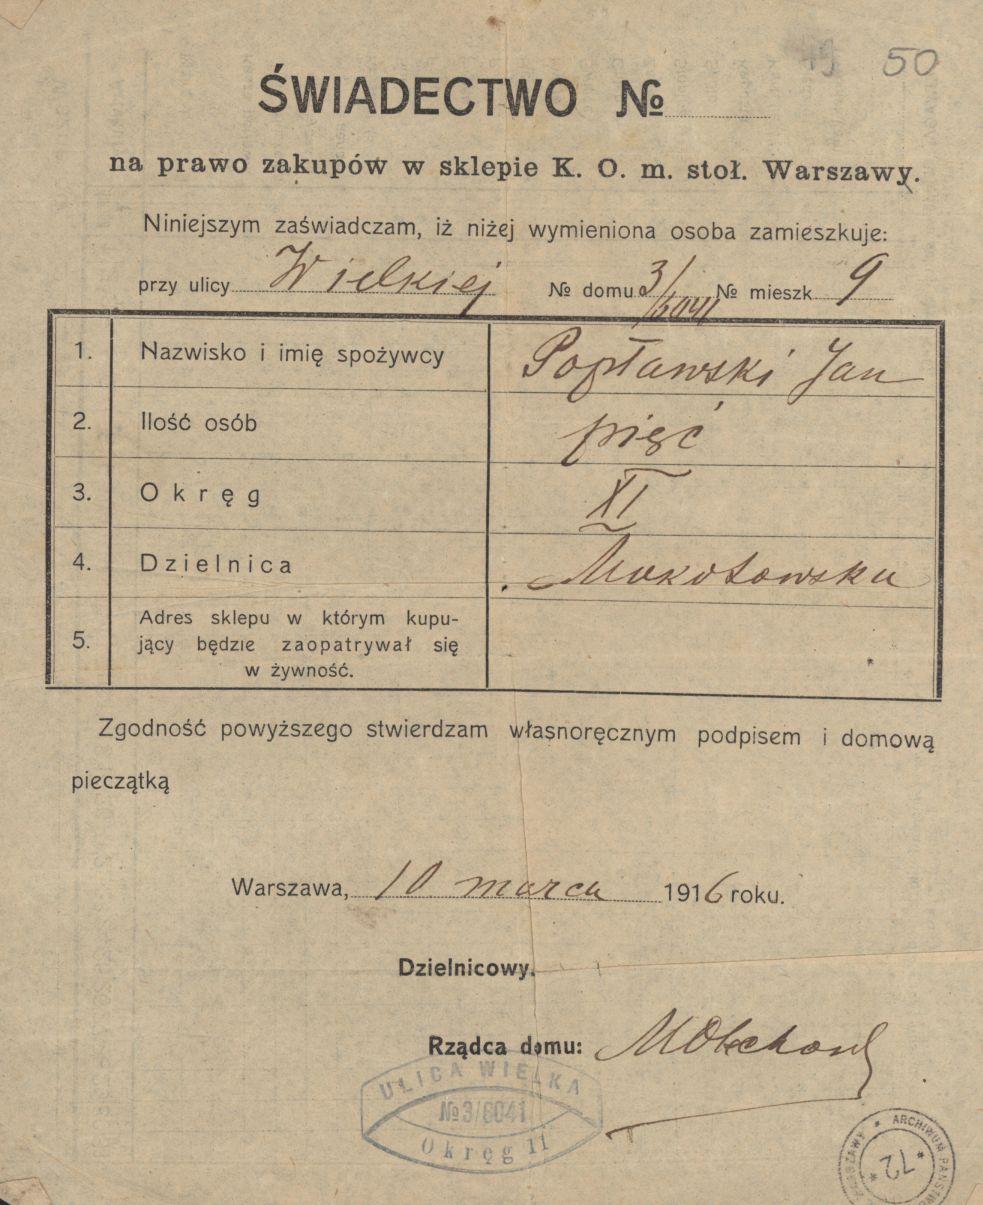 50
ŚWIADECTWO №
na prawo zakupów w sklepie K. O. m. stoł. Warszawy.
Niniejszym zaświadczam, iż niżej wymieniona osoba zamieszkuje:
przy ulicy Wielkiej № domu 3/6041 № mieszk. 9
1. Nazwisko i imię spożywcy Popławski Jan
2. Ilość osób pięć
3. Okręg XI
4. Dzielnica Mokotowska
5. Adres sklepu w którym kupu-
jący będzie zaopatrywał się
w żywność.
Zgodność powyższego stwierdzam własnoręcznym podpisem i domową
pieczątką
Warszawa, 10 marca 1916 roku.
Dzielnicowy.
Rządca domu:
ULICA WIELKA
№3/6041
Okręg 11
WARSZAWY * ARCHIWUM PAŃSTWO
* 72 *